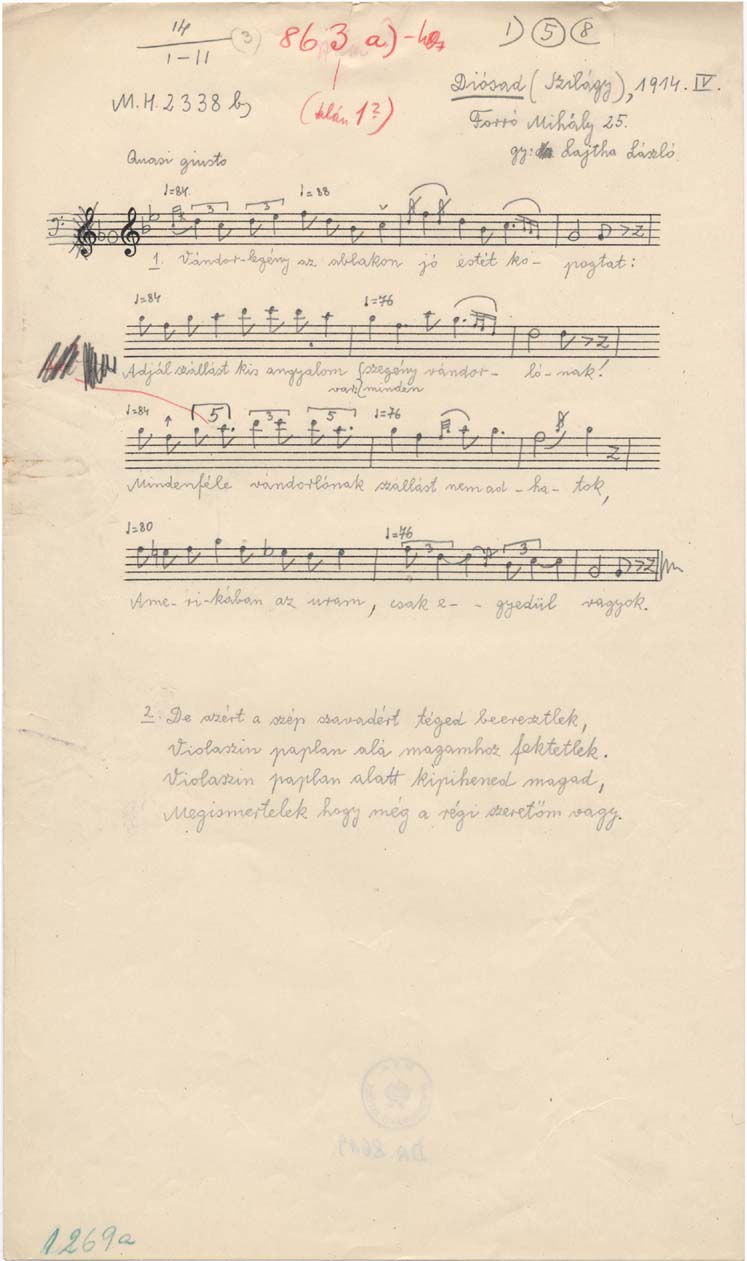 14
I–II
(3)
863 a)-hoz
(talán 1?)
1) 5 8
M.H. 2338 b)
Diósad (Szilágy), 1914. IV.
Forró Mihály 25.
gy: Lajtha László
Quasi giusto
♩=84. 3 3 ♩=88
1. Vándor-legény az ablakon jó estét ko- pogtat:
♩=84 ♩=76
Adjál szállást kis angyalom {szegény vándor- ló-nak!
var: {minden
♩=84 5 3 5 ♩=76
Mindenféle vándorlónak szállást nem ad-ha-tok,
♩=80 ♩=76 3 3
Ame-ri-kában az uram, csak e- - gyedül vagyok.
2. De azért a szép szavadért téged beeresztlek,
Violaszin paplan alá magamhoz fektetlek.
Violaszin paplan alatt kipihened magad,
Megismertelek hogy még a régi szeretőm vagy.
1269a